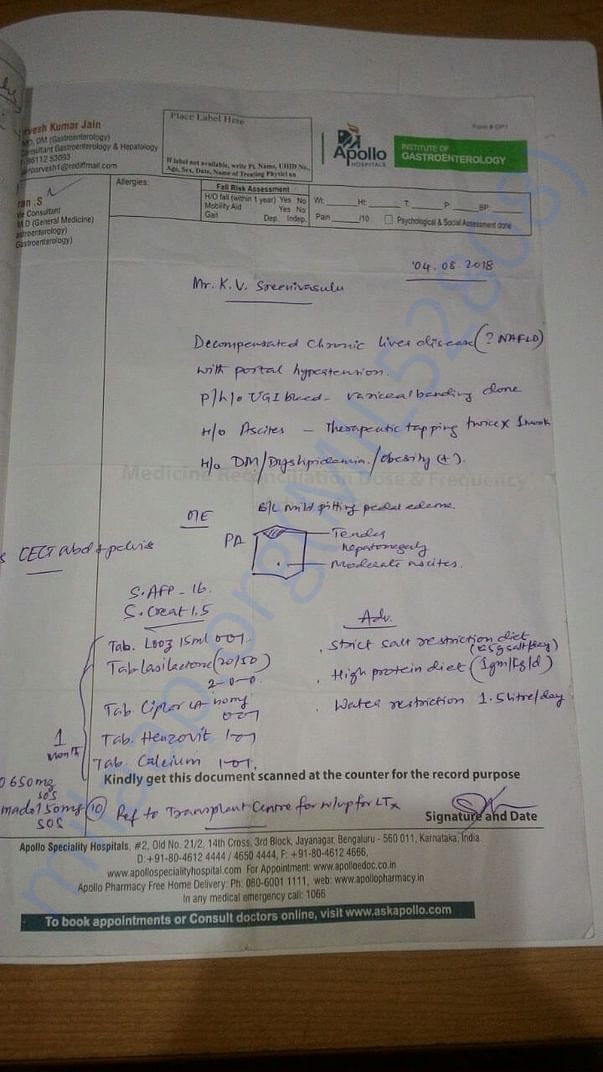 rvesh Kumar Jain
MD, DM (Gastroenterology)
nsultant Gastroenterology & Hepatology
96112 53093
parvesh1@rediffmail.com
ran .S
te Consultant
M.D (General Medicine)
astroenterology)
Gastroenterology)
Place Label Here
If label not available, write Pt. Name, UHID No.,
Age, Sex, Date, Name of Treating Physician
Apollo
HOSPITALS
INSTITUTE OF
GASTROENTEROLOGY
Allergies:
Fall Risk Assessment
H/O fall (within 1 year) Yes No
Mobility Aid Yes No
Gait Dep. Indep.
Wt: Ht: T: P: BP:
Pain /10 Psychological & Social Assessment done
04.08.2018
Mr. K.V. Sreenivasulu
Decompensated Chronic liver disease (? NAFLD)
with portal hypertension.
P/h/o UGI bleed - variceal banding done
H/O Ascites - Therapeutic tapping twice x 1
H/O DM/Dyslipidemia/obesity (+).
Medicine Reconciliation Dose & Frequency
O/E B/L mild pitting pedal edema.
PA Tender
hepatomegaly
Moderate ascites.
CECT abd + pelvis
S.AFP - 16
S.Creat 1.5
Adv.
Tab. Looz 15ml 001
Tab Lasilactone (20/50)
2-0-0
001
Tab. Calcium 1-01.
1
month
. Strict salt restriction diet
. High protein diet (1gm/kg/d)
. Water restriction 1.5 litre/day
Kindly get this document scanned at the counter for the record purpose
650mg
SOS
50mg
SOS
(10) Ref to Transplant Centre for w/up for LTx
Signature and Date
Apollo Speciality Hospitals, #2, Old No. 21/2, 14th Cross, 3rd Block, Jayanagar, Bengaluru - 560 011, Karnataka, India
D:+91-80-4612 4444 / 4650 4444, F: +91-80-4612 4666,
www.apollospecialityhospital.com For Appointment: www.apolloedoc.co.in
Apollo Pharmacy Free Home Delivery: Ph: 080-6001 1111, web: www.apollopharmacy.in
In any medical emergency call: 1066
To book appointments or Consult doctors online, visit www.askapollo.com